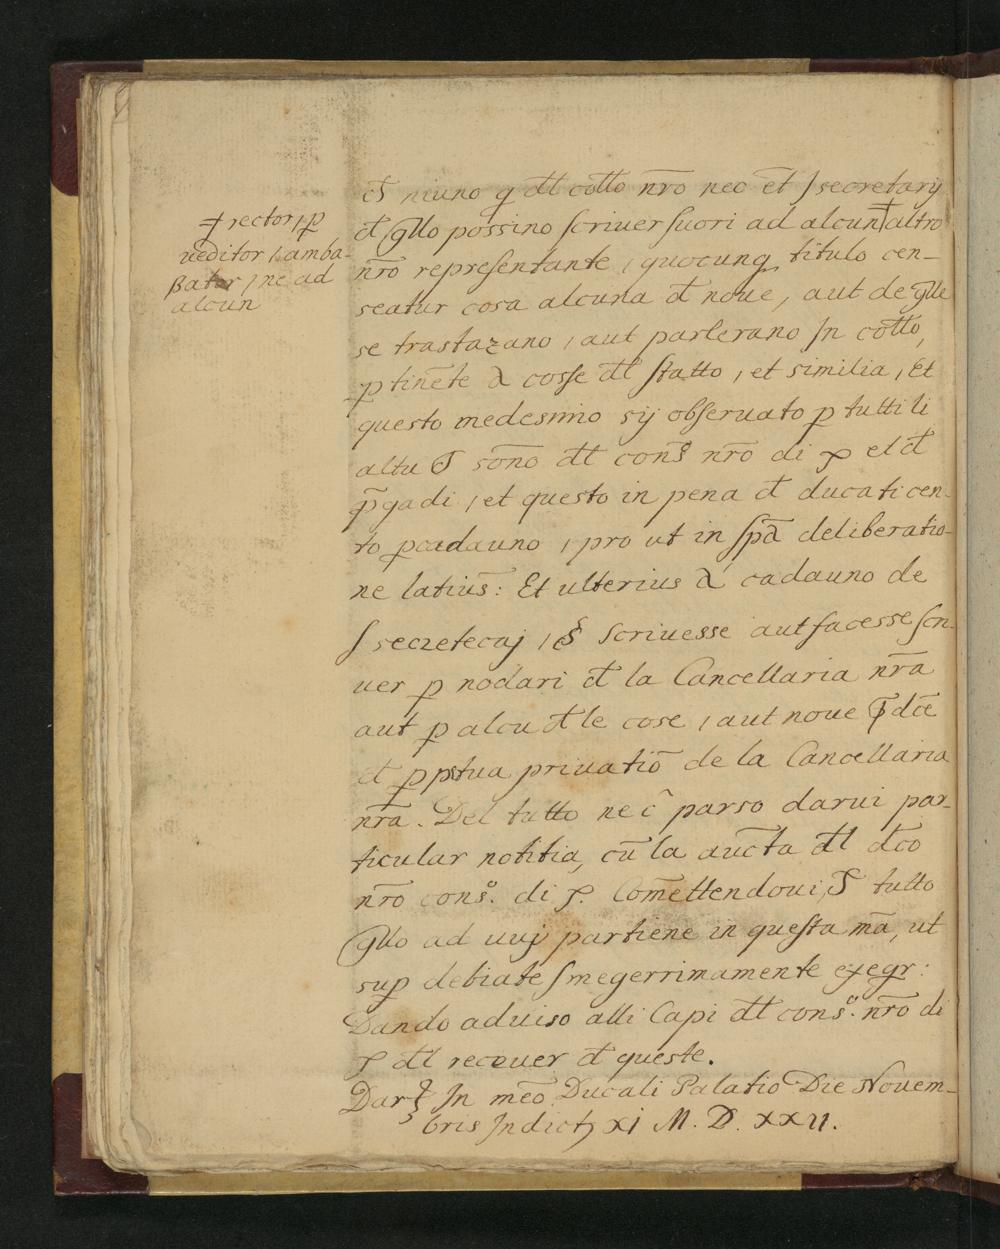 ≠ rector, p
ueditor, amba-
ßator, ne ad
alcun
cħ niuno q̣ dl̄ collo nr̄o neo et̄ J secretarij
d̄ q̄llo possino scriuer fuori ad alcun ≠ altro
nr̄o representante, quocunq titulo cen-
seatur cosa alcuna d̄ noue, aut de q̄lle
se trastazano, aut parlerano In collo,
ꝑtinēte a cosse dl̄ statto, et similia, Et
questo medesimo sij obseruato ꝑ tutti li
altri sōno dl̄ cons nr̄o di x el d̄
p̄gadi, et questo in pena d̄ ducati cen-
to ꝑ cadauno, pro ut in sp̄a deliberatio-
ne latius: Et ulterius cadauno de
J secretecaj, scriuesse aut facesse scri-
uer ꝑ nodari d̄ la Cancellaria nr̄a
aut ꝑ alcu dle cose, aut noue dc̄e
d̄ ꝑpetua priuatiō de la Cancellaria
nr̄a. Del tutto ne è parso darui par-
ticular notitia, cū la auct̄a dl̄ dc̄o
nr̄o cons.º di x. Com̄ettendoui, tutto
q̄llo ad uuj partiene in questa mā, ut
sup debiate Jntegerrimamente exegr:
Dando aduiso alli Capi dl̄ cons.º nr̄o di
x dl̄ receuer d̄ queste.
Dat In nr̄o Ducali Palatio Die Nouem-
bris Indict xj M. D. xxij.